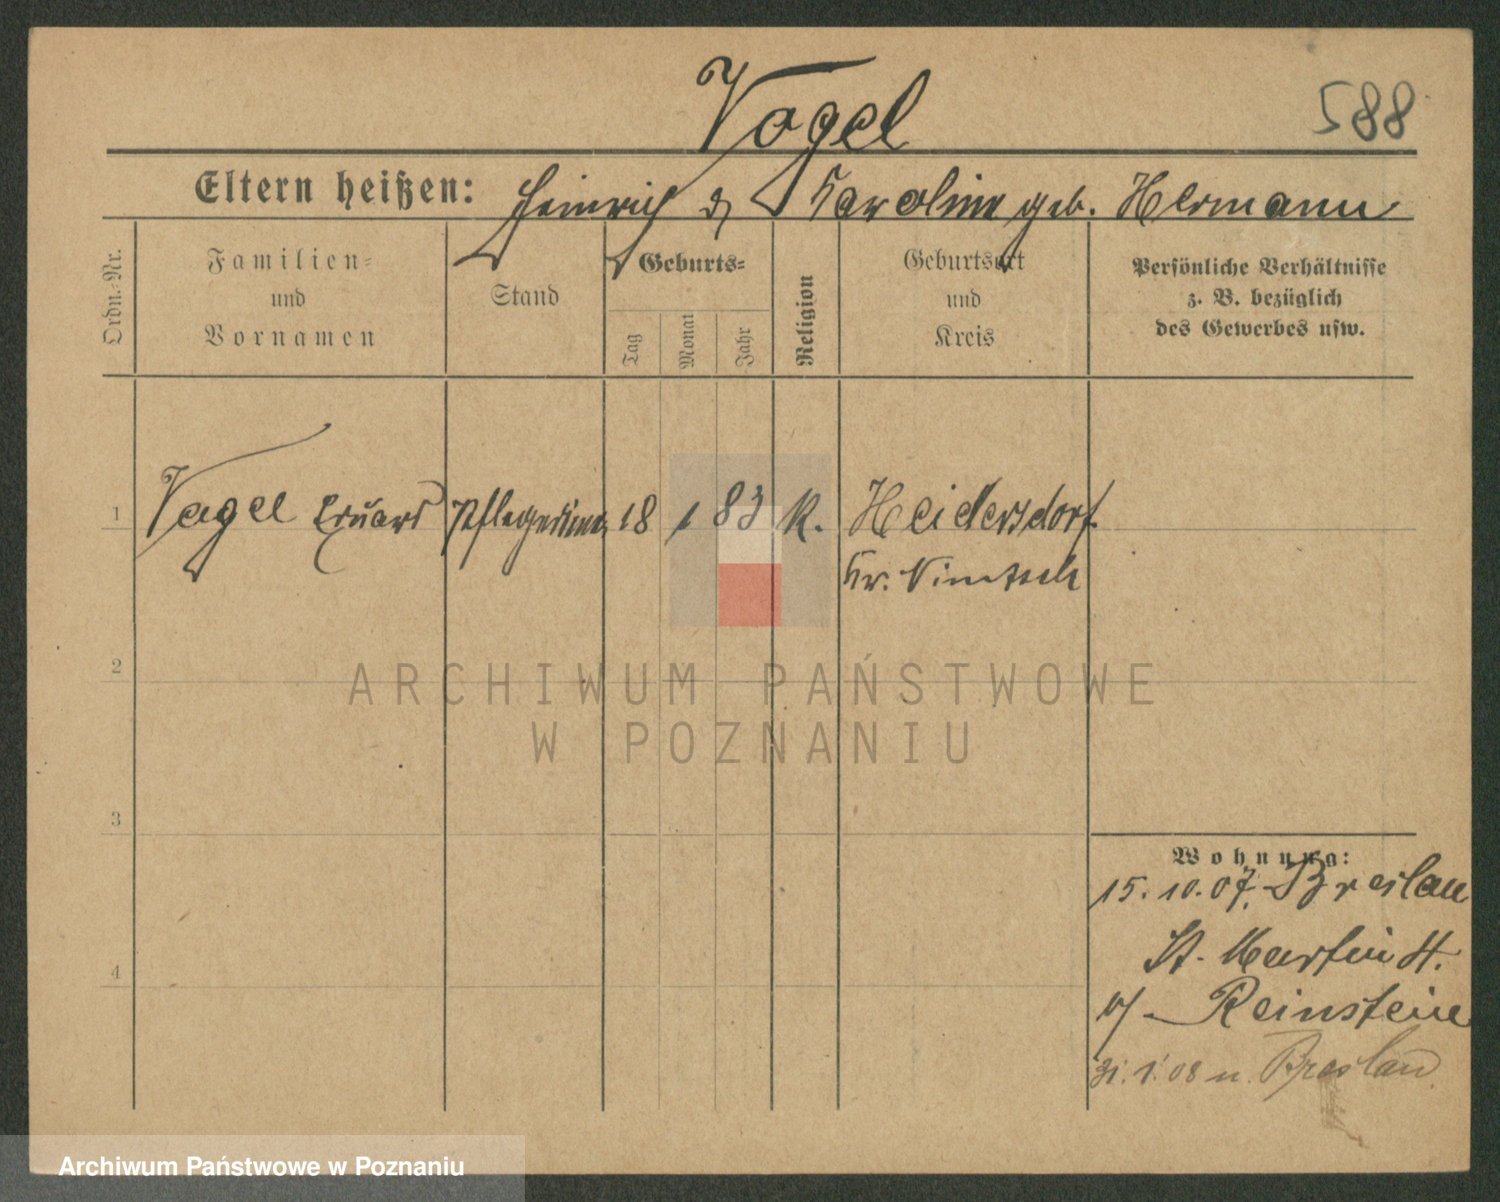 Vogel
588
Eltern heißen: Heinrich & Karoline geb. Hermann
Ordn.-Nr.
Familien-
und
Vornamen
Stand
Geburts-
Tag
Monat
Jahr
Religion
Geburtsort
und
Kreis
Persönliche Verhältnisse
z. B. bezüglich
des Gewerbes usw.
1 Vogel Eduard 18 1 83 K. Heidersdorf
Kr. Nimptsch
2
ARCHIWUM PAŃSTWOWE
W POZNANIU
3
Wohnung:
15.10.07. Breslau
St. Martin
Reinstein
31.1.08 n. Breslau
4
Archiwum Państwowe w Poznaniu